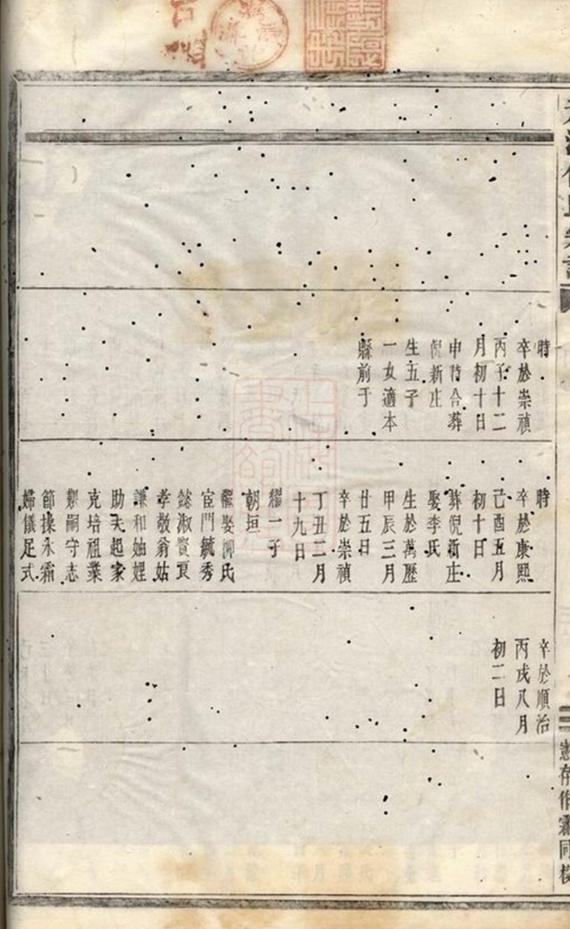 時
卒於崇禎
丙子十二
月初十日
申時合葬
倪新庄
生五子
一女適本
縣前于
時
卒於康熙
己酉五月
初十日
葬倪新庄
娶李氏
生於萬歷
甲辰三月
廿五日
卒於崇禎
丁丑二月
十九日
耀一子
朝垣
繼娶柳氏
宦門毓秀
懿淑賢良
孝敬翁姑
謙和妯娌
助夫起家
克培祖業
撫嗣守志
節操永霜
婦儀足式
卒於順治
丙戌八月
初二日